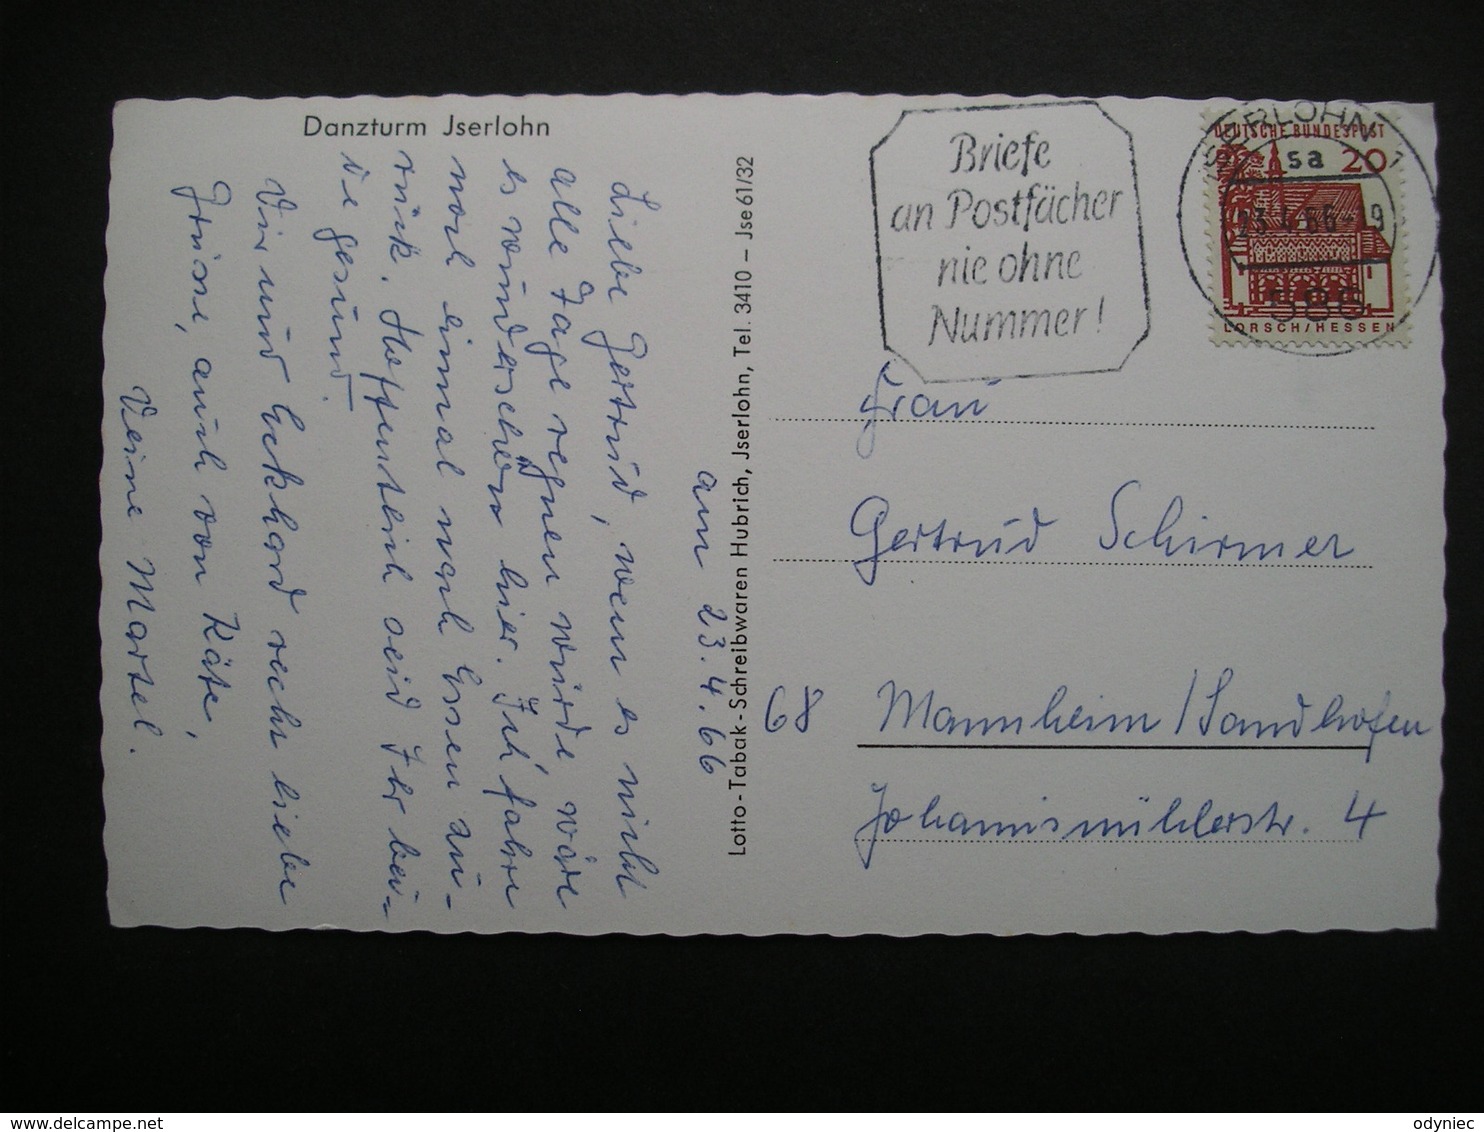 Danzturm Jserlohn
am 23.4.66
Liebe Gertrud, wenn es nicht
alle Tage regnen würde, wäre
es wunderschön hier. Ich fahre
noch einmal nach Essen zu-
rück. Hoffentlich seid Ihr bei-
de gesund.
Dir und Eckhard recht liebe
Grüsse, auch von Käte,
Deine Martel.
Lotto-Tabak-Schreibwaren Hubrich, Jserlohn, Tel. 3410 – Jse 61/32
Briefe
an Postfächer
nie ohne
Nummer!
ISERLOHN 1
sa
23.4.66-19
586
DEUTSCHE BUNDESPOST
20
LORSCH/HESSEN
Frau
Gertrud Schirmer
68 Mannheim/Sandhofen
Johannismühlerstr. 4
odyniec
www.delcampe.net